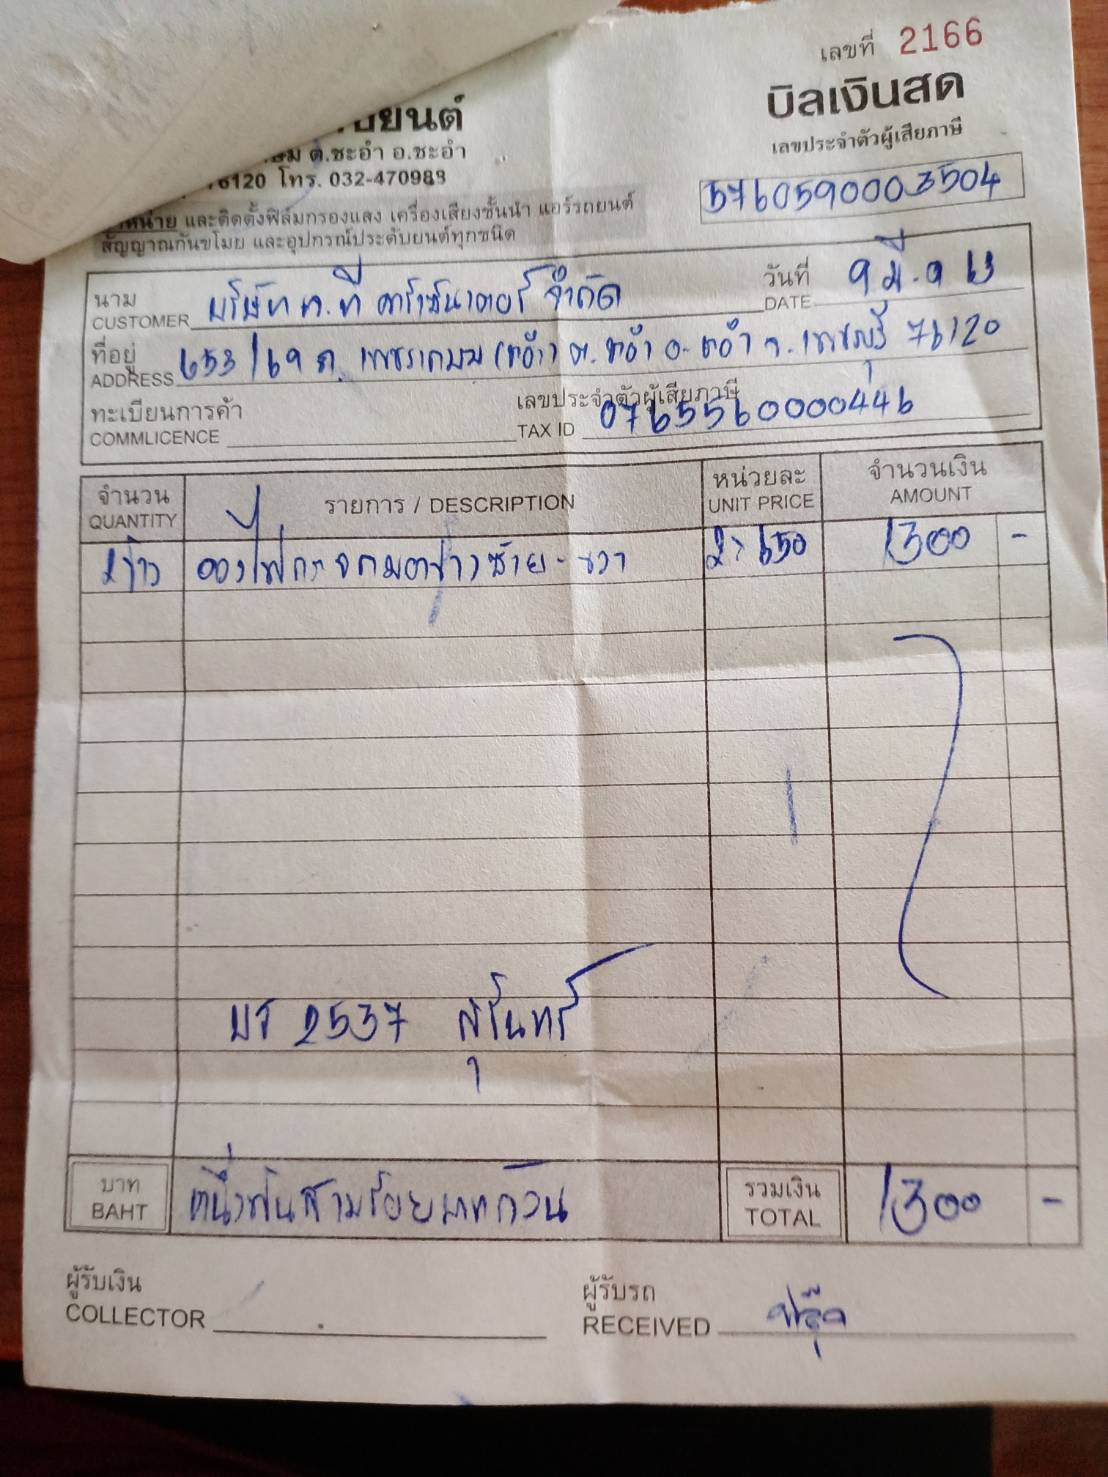 เลขที่ 2166
บิลเงินสด
เลขประจำตัวผู้เสียภาษี
5760590003504
ยนต์
ต.ชะอำ อ.ชะอำ
76120 โทร. 032-470983
และติดตั้งฟิล์มกรองแสง เครื่องเสียงชั้นนำ แอร์รถยนต์
สัญญาณกันขโมย และอุปกรณ์ประดับยนต์ทุกชนิด
นาม บริษัท ที จำกัด
CUSTOMER
วันที่ 9 มี.ค 63
DATE
ที่อยู่ 653/69 ถ. เพชรเกษม ต. ชะอำ อ. ชะอำ จ. เพชรบุรี 76120
ADDRESS
ทะเบียนการค้า
COMMLICENCE
เลขประจำตัวผู้เสียภาษี
TAX ID 0765560000446
จำนวน QUANTITY รายการ / DESCRIPTION หน่วยละ UNIT PRICE จำนวนเงิน AMOUNT
2 ข้าง ไฟ กระจกมองข้างซ้าย - ขวา 2> 650 1300 -
บร 2537 สุรินทร์
บาท BAHT หนึ่งพันสามร้อยบาทถ้วน รวมเงิน TOTAL 1300 -
ผู้รับเงิน
COLLECTOR
ผู้รับรถ
RECEIVED